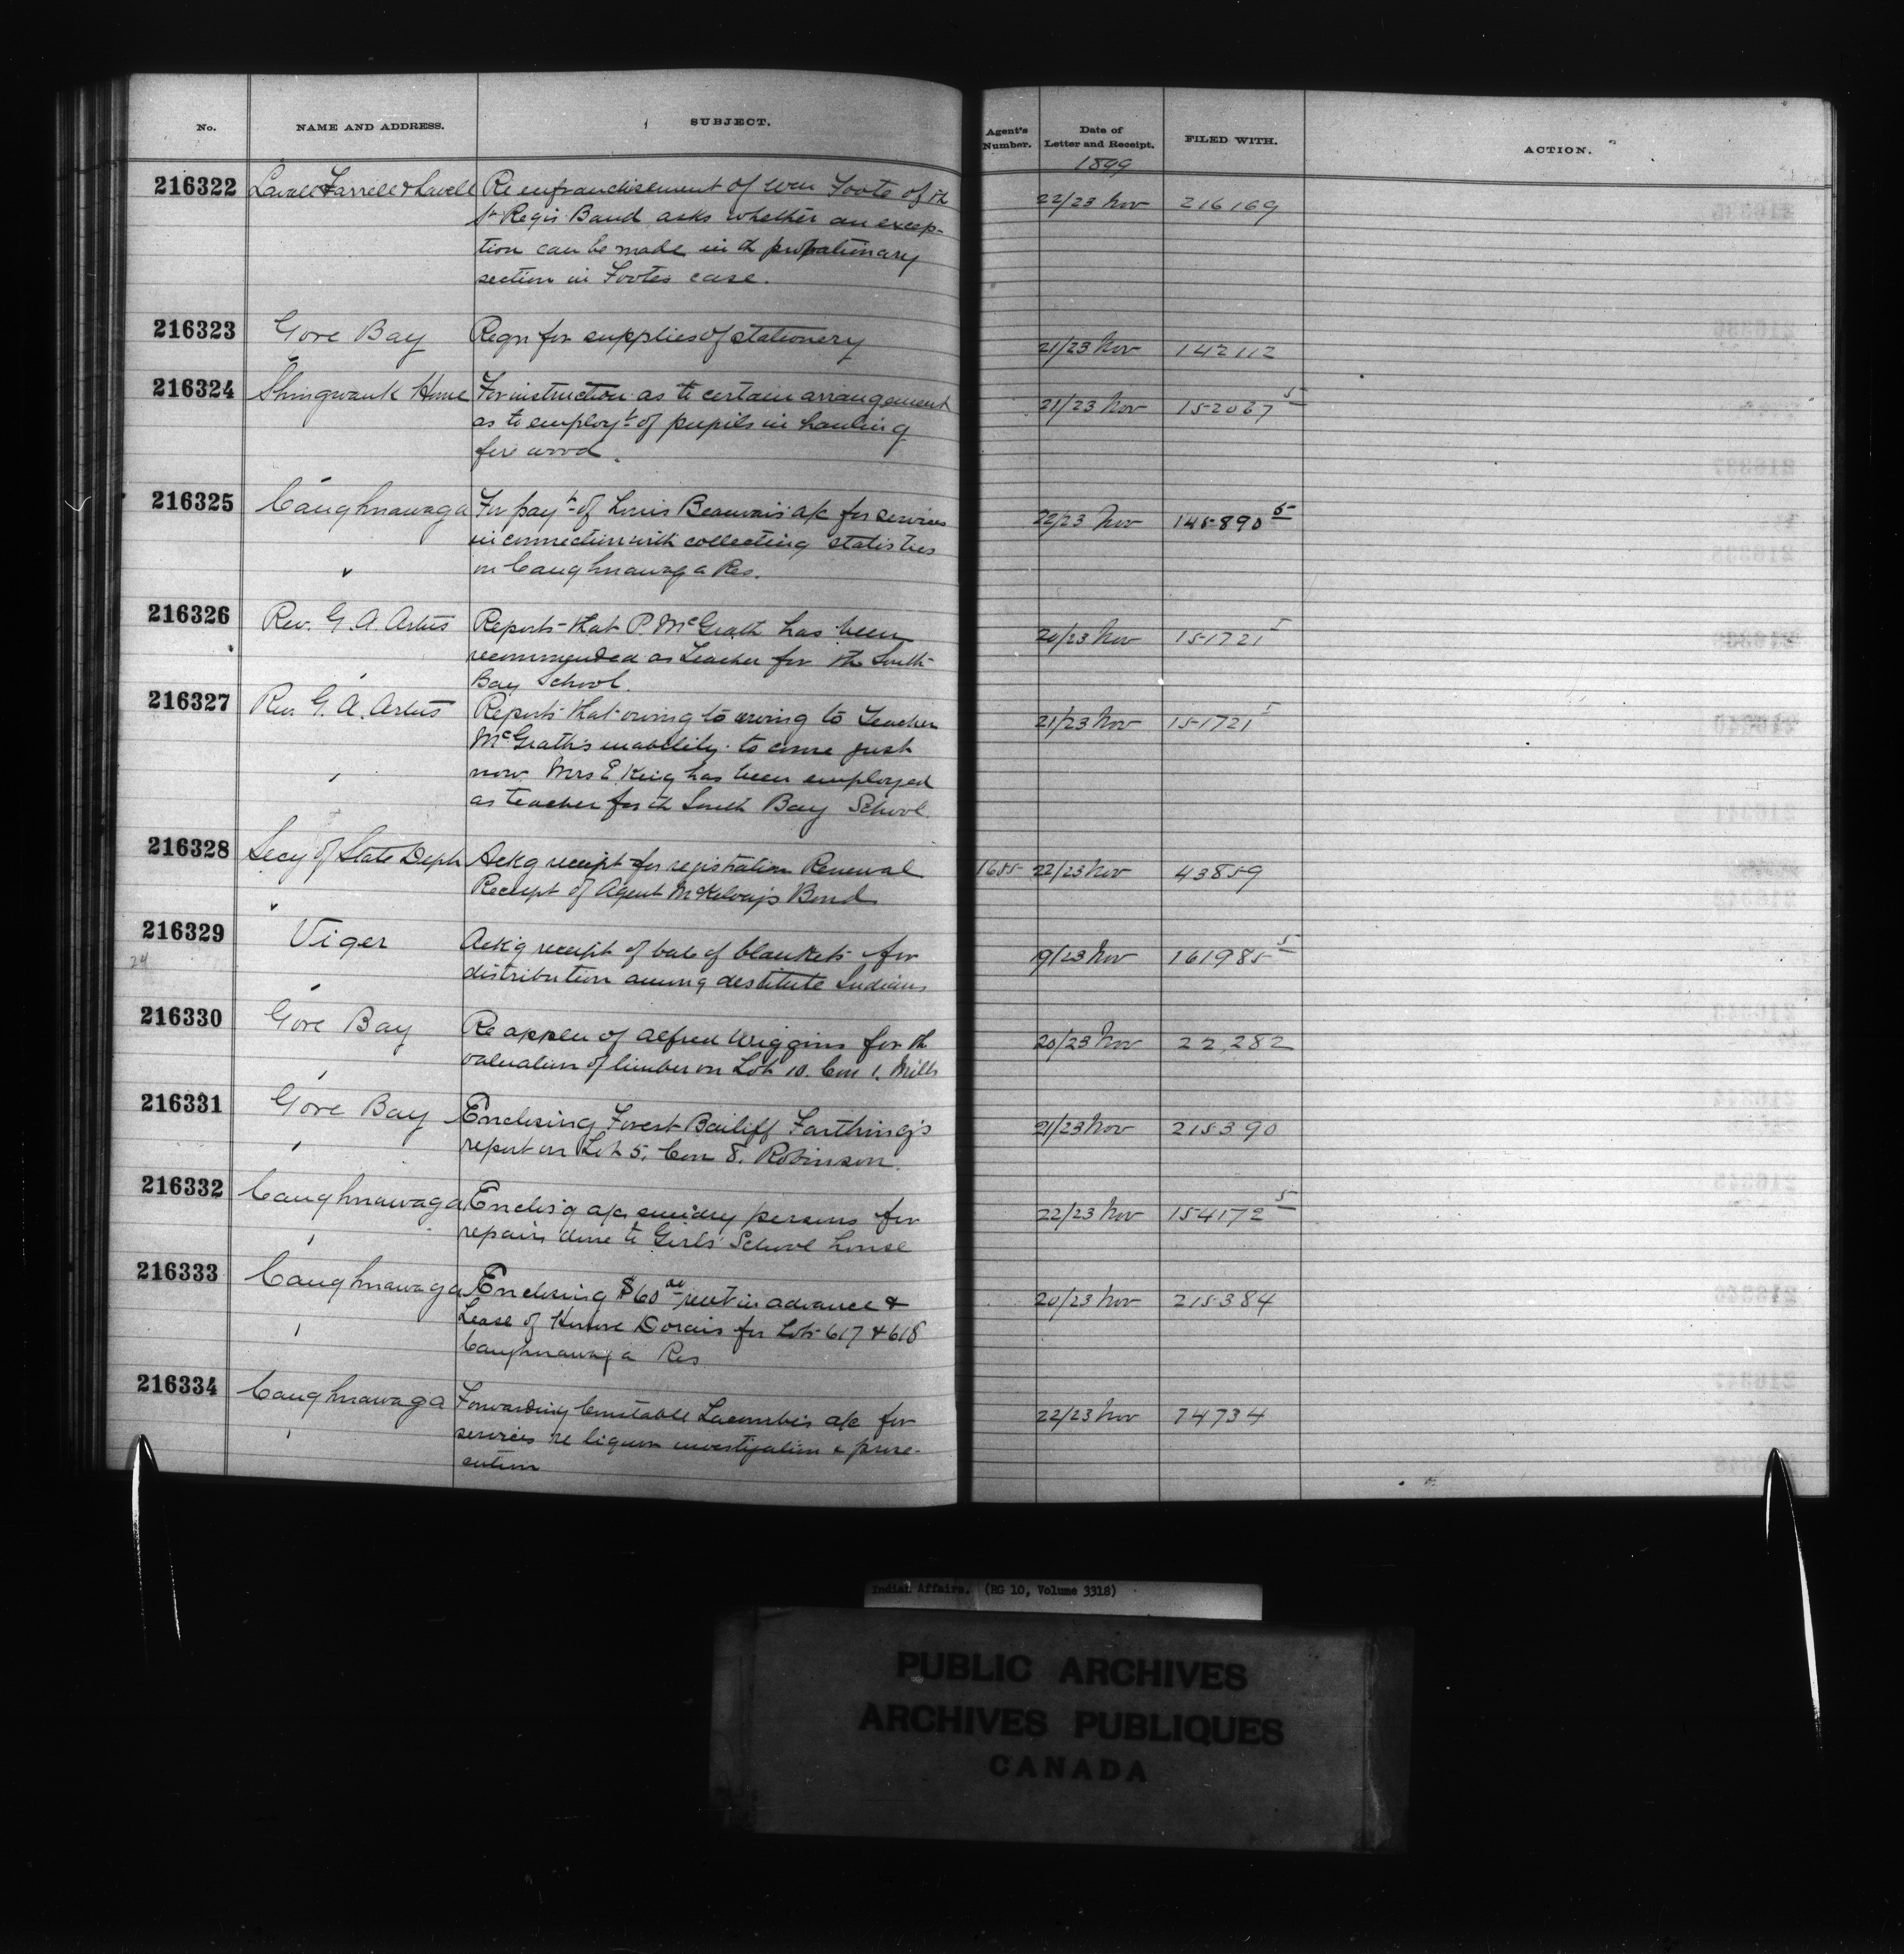 No. NAME AND ADDRESS. SUBJECT. Agent's Number. Date of Letter and Receipt. FILED WITH. ACTION.
1899
216322 Lavell Farrell & Lavell Re enfranchisement of Wm Foote of th 22/23 Nov 216169
St Regis Band asks whether an excep-
tion can be made in th probationary
section in Footes case.
216323 Gore Bay Reqn for supplies of stationery 21/23 Nov 142112
216324 Shingwauk Home For instruction as to certain arrangement 21/23 Nov 152067 5
as to employt of pupils in hauling
fire wood.
216325 Caughnawaga For payt of Louis Beauvais a/c for services 22/23 Nov 145890 5
in connection with collecting statistics
on Caughnawaga Res.
216326 Rev. G. A. Artus Reports that P. McGrath has been 20/23 Nov 151721 5
recommended as Teacher for the South
Bay School.
216327 Rev G. A. Artus Reports that owing to owing to Teacher 21/23 Nov 151721 5
McGrath's inability to come just
now Mrs E King has been employed
as teacher for th South Bay School.
216328 Secy of State Dept Ackg receipt for registration Renewal 1655 22/23 Nov 43859
Receipt of Agent McKelvey's Bond
216329 Viger Ack'g receipt of bale of blankets for 9/23 Nov 161985 5
24
distribution among destitute Indians
216330 Gore Bay Re appln of Alfred Wiggins for th 20/23 Nov 22,282
valuation of timber on Lot 10. Con 1. Mills
216331 Gore Bay Enclosing Forest Bailiff Farthing's 21/23 Nov 215390
report on Lot 5. Con 8. Robinson.
216332 Caughnawaga Enclos'g a/cs sundry persons for 22/23 Nov 154172 5
repairs done to Girls' School house
216333 Caughnawaga Enclosing $60 00 rent in advance & 20/23 Nov 215384
Lease of Honore Dorais for Lots 617 & 618
Caughnawaga Res
216334 Caughnawaga Forwarding Constable Lacombe's a/c for 22/23 Nov 74734
services re liquor investigation & prose-
cution
Indian Affairs. (RG 10, Volume 3318)
PUBLIC ARCHIVES
ARCHIVES PUBLIQUES
CANADA